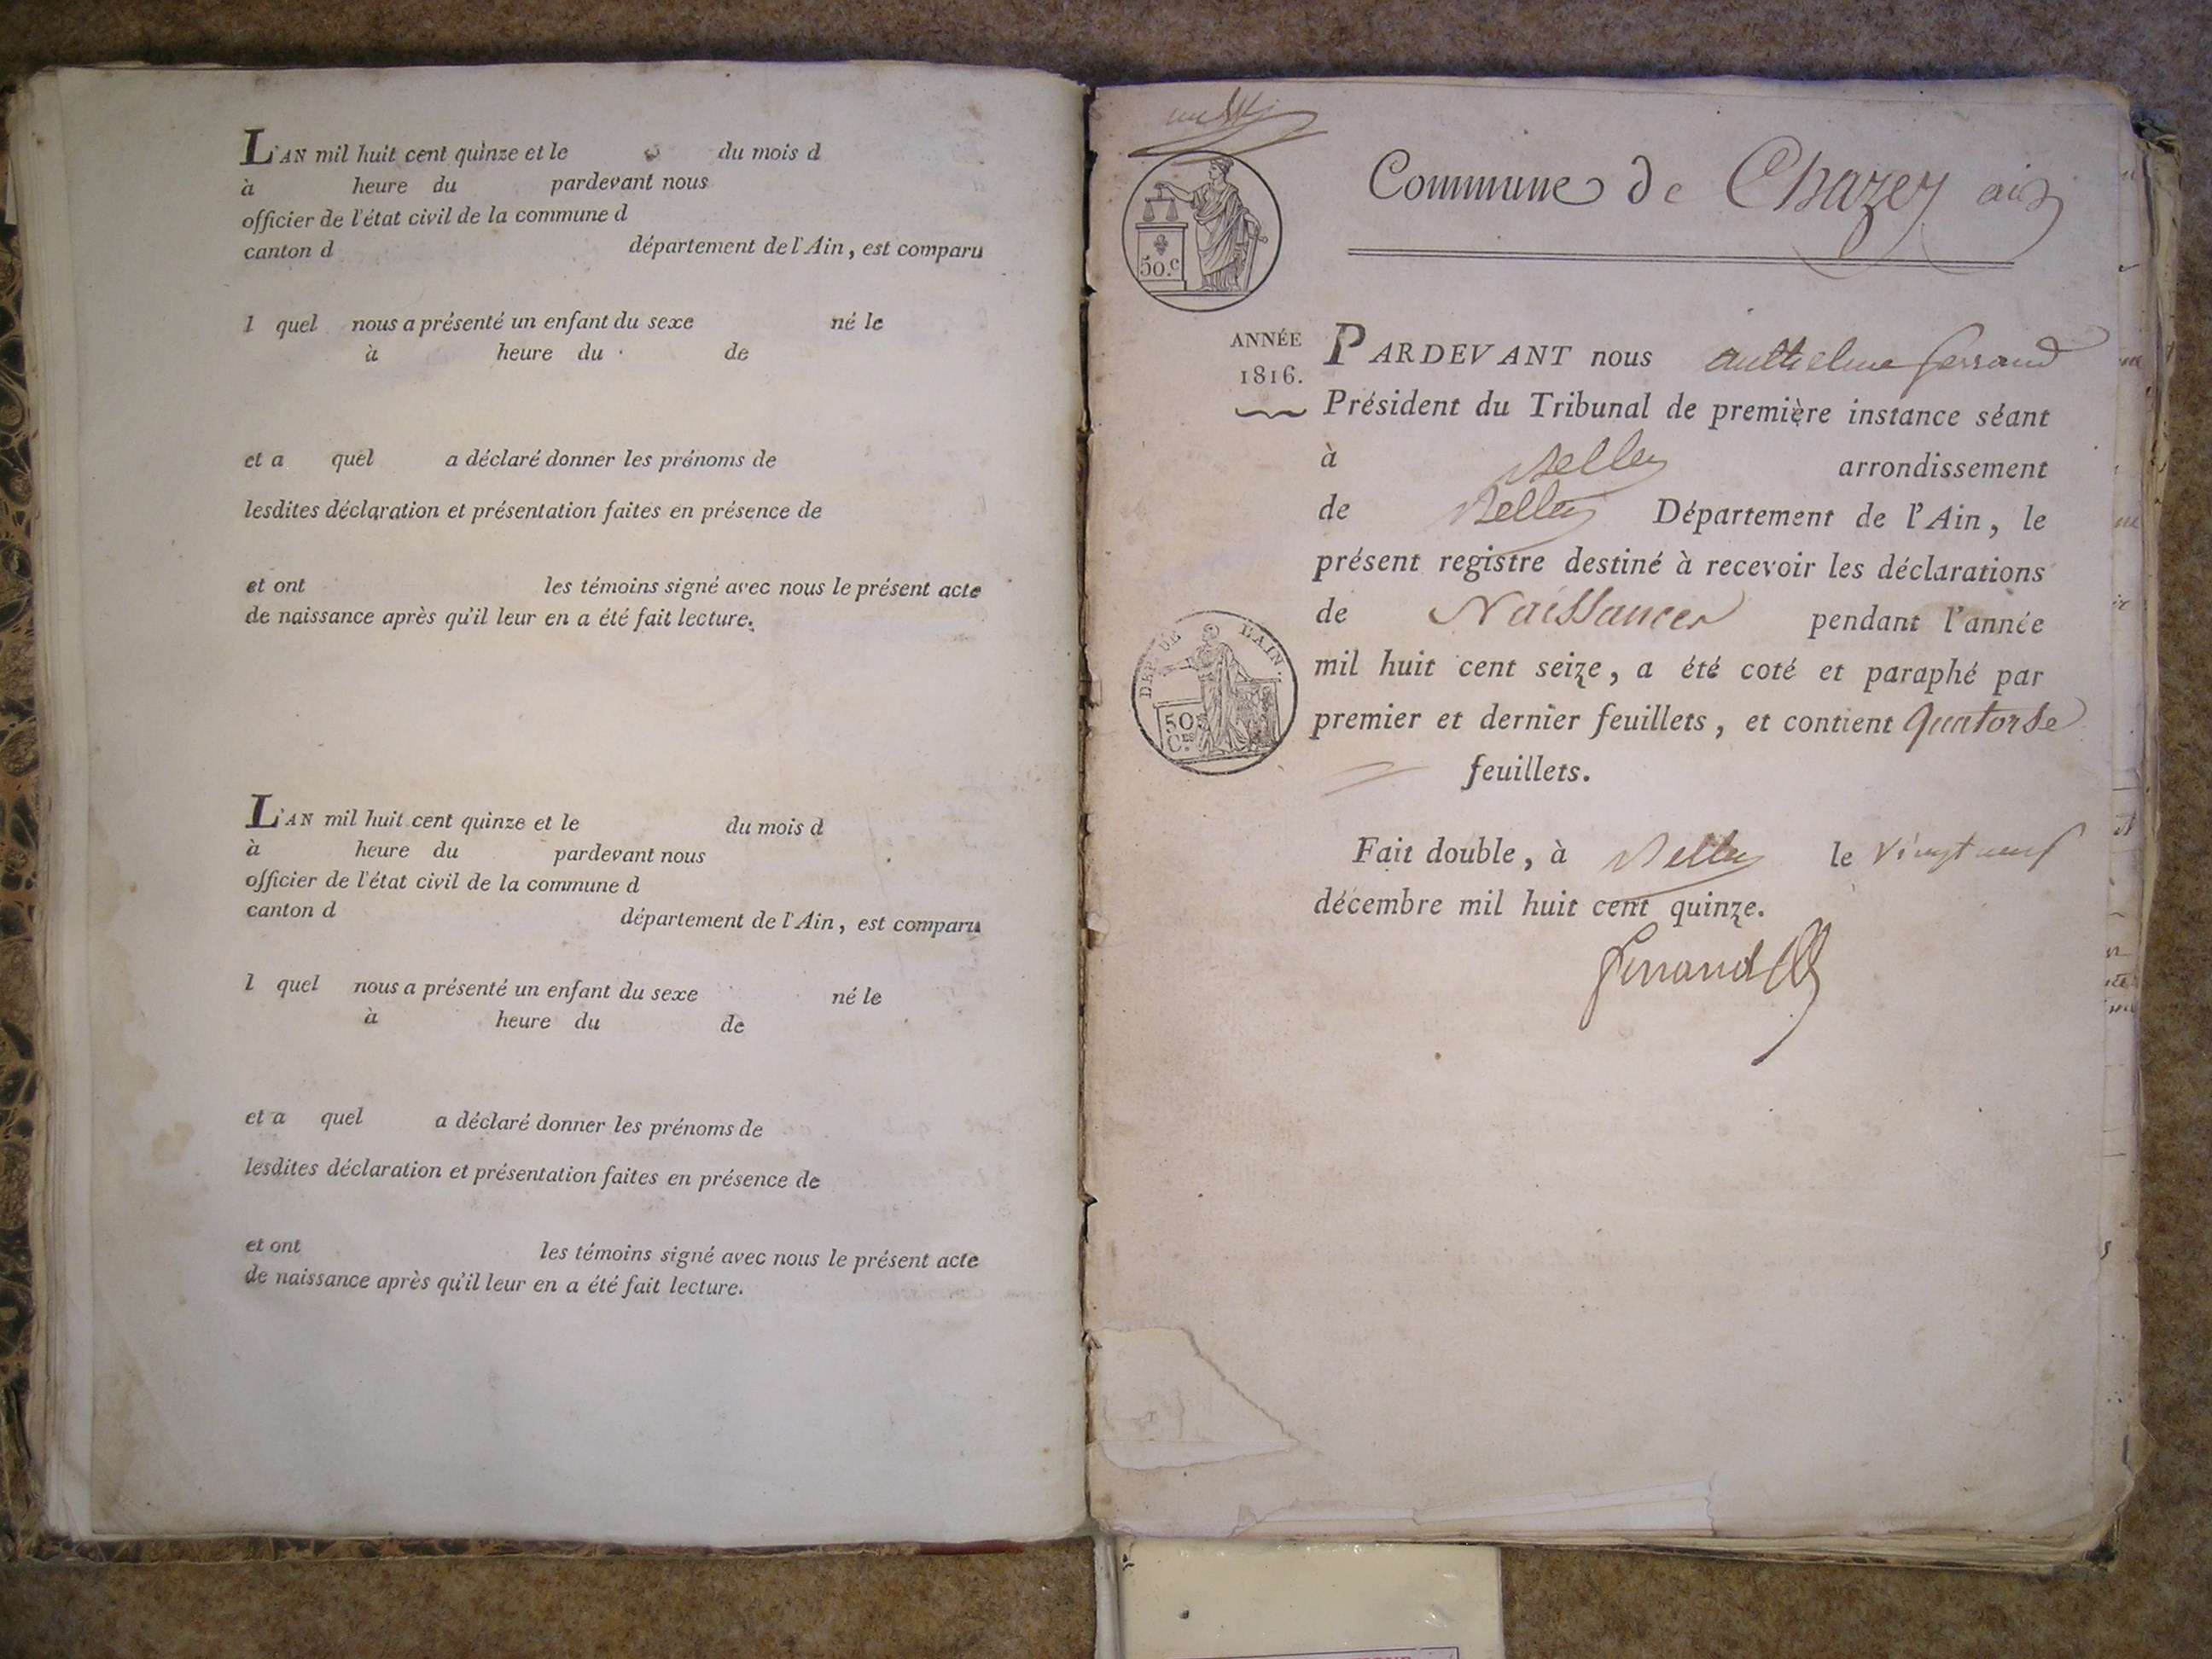 L'AN mil huit cent quinze et le du mois d
à heure du pardevant nous
officier de l'état civil de la commune d
canton d département de l'Ain, est comparu
l quel nous a présenté un enfant du sexe né le
à heure du de
et a quel a déclaré donner les prénoms de
lesdites déclaration et présentation faites en présence de
et ont les témoins signé avec nous le présent acte
de naissance après qu'il leur en a été fait lecture.
L'AN mil huit cent quinze et le du mois d
à heure du pardevant nous
officier de l'état civil de la commune d
canton d département de l'Ain, est comparu
l quel nous a présenté un enfant du sexe né le
à heure du de
et a quel a déclaré donner les prénoms de
lesdites déclaration et présentation faites en présence de
et ont les témoins signé avec nous le présent acte
de naissance après qu'il leur en a été fait lecture.
Commune de Chazey ain
50.c
ANNÉE
1816.
PARDEVANT nous anthelme ferrand
Président du Tribunal de première instance séant
à Belley arrondissement
de Belley Département de l'Ain, le
présent registre destiné à recevoir les déclarations
de Naissances pendant l'année
DEP. DE L'AIN.
50
C.es
mil huit cent seize, a été coté et paraphé par
premier et dernier feuillets, et contient quatorse
feuillets.
Fait double, à Belley le vingt neuf
décembre mil huit cent quinze.
ferrand